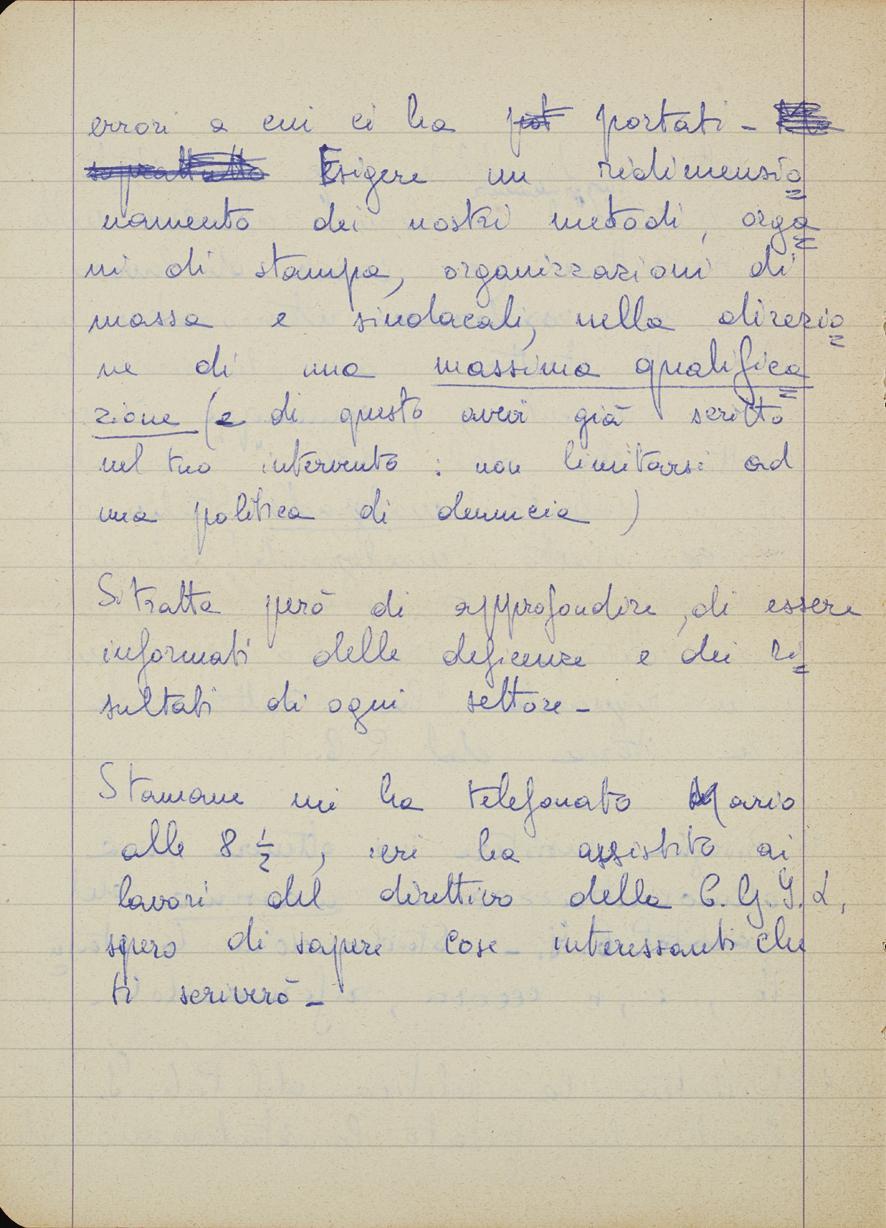 errori a cui ci ha portati -
Esigere un ridimensio=
namento dei nostri metodi, orga=
ni di stampa, organizzazioni di
massa e sindacali, nella direzio=
ne di una massima qualifica=
zione (e di questo avevi già scritto
nel tuo intervento : non limitarsi ad
una politica di denuncia )
Si tratta però di approfondire, di essere
informati delle deficenze e dei ri=
sultati di ogni settore -
Stamane mi ha telefonato Mario
alle 8 ½, ieri ha assistito ai
lavori del direttivo della C.G.I.L,
spero di sapere cose interessanti che
ti scriverò -